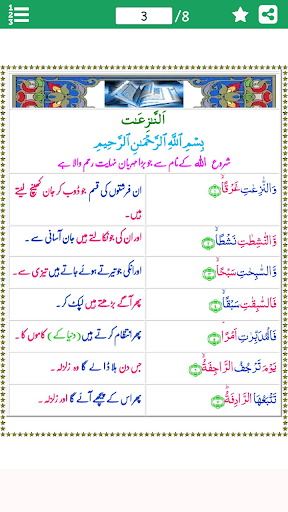 1
2
3
3 /8
اَلنّٰزِعٰت
بِسْمِ اللّٰهِ الرَّحْمٰنِ الرَّحِيْمِ
شروع الله کے نام سے جو بڑا مہربان نہایت رحم والا ہے
وَالنّٰزِعٰتِ غَرْقًا ۙ ان فرشتوں کی قسم جو ڈوب کر جان کھینچ لیتے
ہیں۔
وَّالنّٰشِطٰتِ نَشْطًا ۙ اور ان کی جو نکالتے ہیں جان آسانی سے ۔
وَّالسّٰبِحٰتِ سَبْحًا ۙ اور انکی جو تیرتے ہوئے جاتے ہیں تیزی سے ۔
فَالسّٰبِقٰتِ سَبْقًا ۙ پھر آگے بڑھتے ہیں لپک کر۔
فَالْمُدَبِّرٰتِ اَمْرًا ۘ پھر انتظام کرتے ہیں (دنیا کے) کاموں کا ۔
يَوْمَ تَرْجُفُ الرَّاجِفَةُ ۙ جس دن ہلا ڈالے گا وہ زلزلہ ۔
تَتْبَعُهَا الرَّادِفَةُ ؕ پھر اس کے پیچھے آئے گا اور زلزلہ ۔